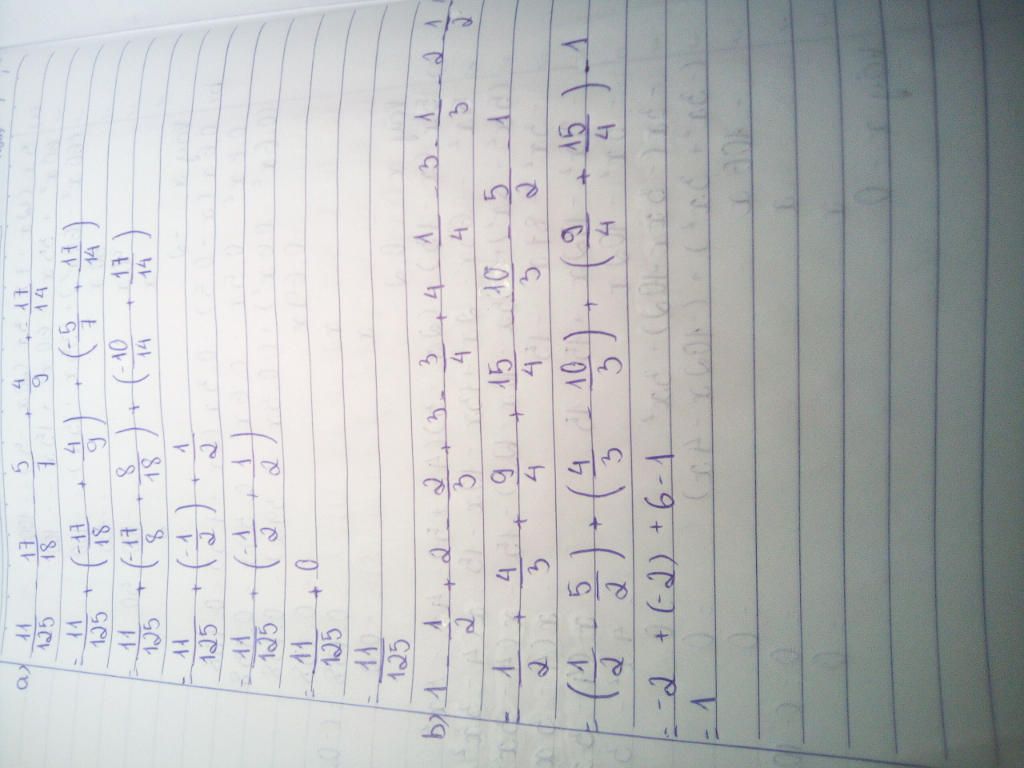 a) 11/125 - 17/18 - 5/7 + 4/9 + 17/14
= 11/125 + (-17/18 + 4/9) + (-5/7 + 17/14)
= 11/125 + (-17/8 + 8/18) + (-10/14 + 17/14)
= 11/125 + (-1/2) + 1/2
= 11/125 + (-1/2 + 1/2)
= 11/125 + 0
= 11/125
b) 1 - 1/2 + 2 - 2/3 + 3 - 3/4 + 4 - 1/4 - 3 - 1/3 - 2 - 1/2
= 1/2 + 4/3 + 9/4 + 15/4 - 10/3 - 5/2 - 1
= (1/2 - 5/2) + (4/3 - 10/3) + (9/4 + 15/4) - 1
= -2 + (-2) + 6 - 1
= 1